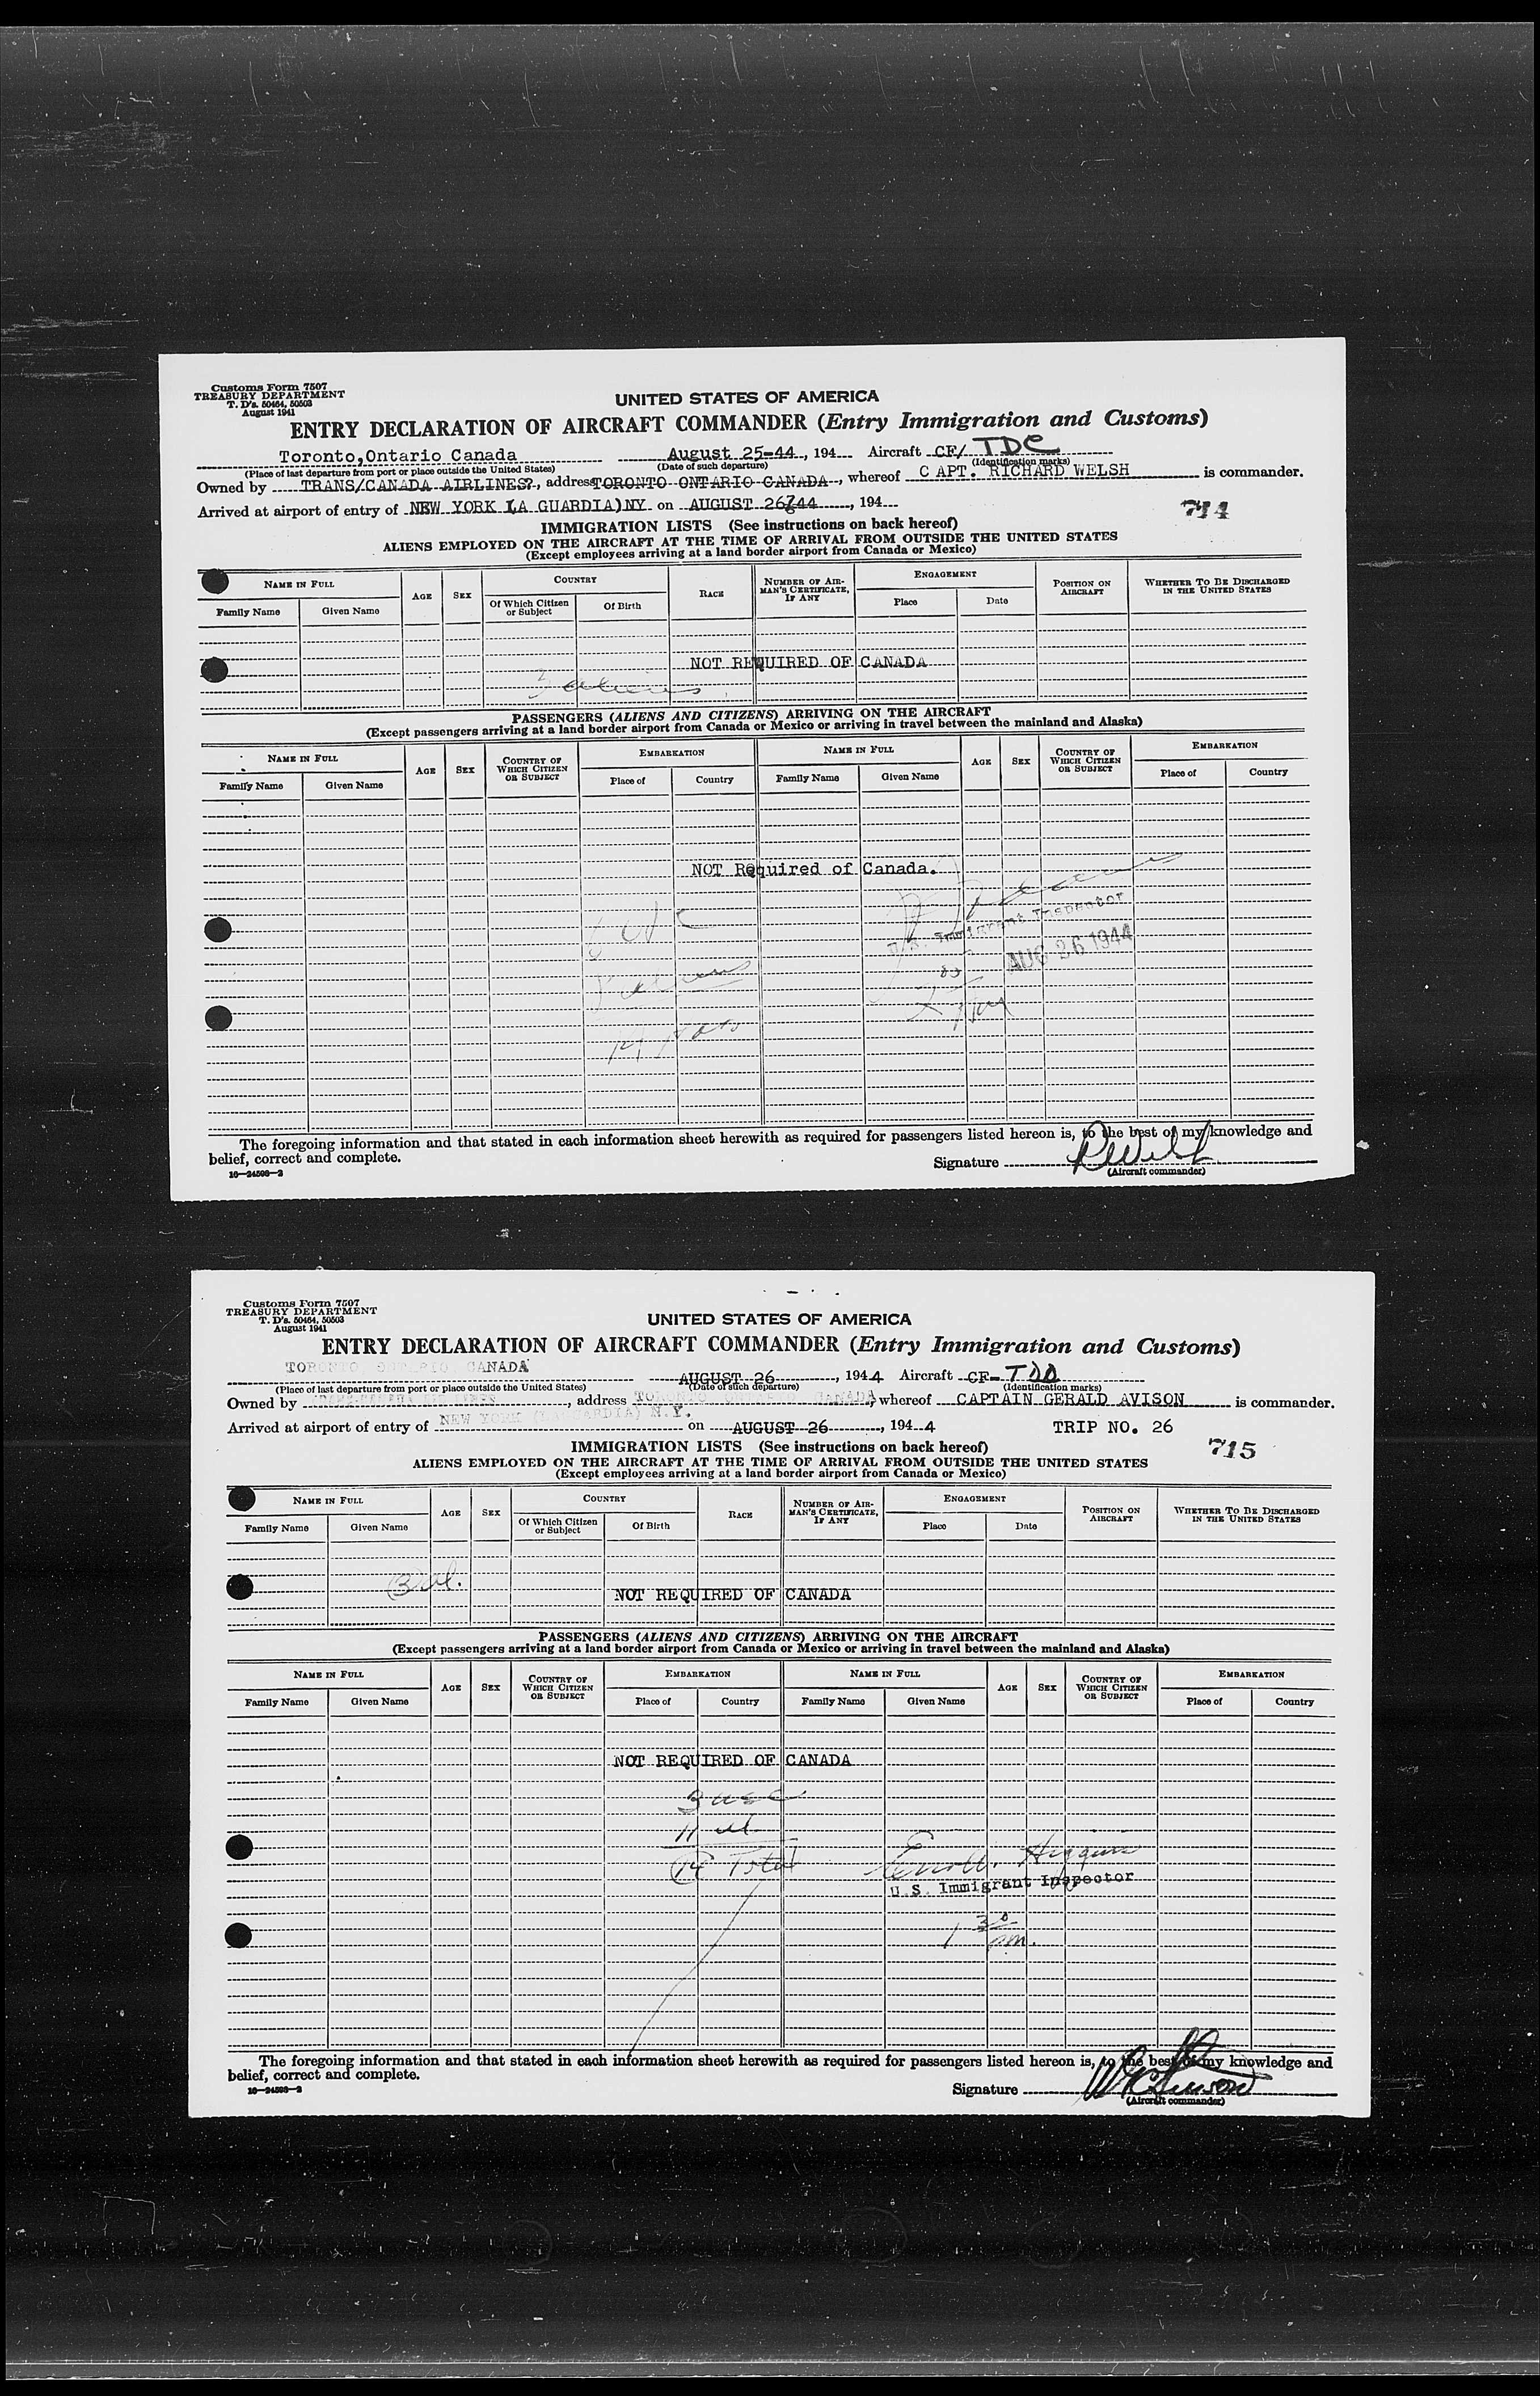 Customs Form 7507
TREASURY DEPARTMENT
T. D's. 50464, 50503
August 1941
UNITED STATES OF AMERICA
ENTRY DECLARATION OF AIRCRAFT COMMANDER (Entry Immigration and Customs)
Toronto, Ontario Canada August 25-44, 194 Aircraft CF/ TDC
(Place of last departure from port or place outside the United States) (Date of such departure) (Identification marks)
Owned by TRANS/CANADA AIRLINES?, address TORONTO ONTARIO CANADA, whereof C APT. RICHARD WELSH is commander.
Arrived at airport of entry of NEW YORK LA GUARDIA)NY on AUGUST 26/44, 194
714
IMMIGRATION LISTS (See instructions on back hereof)
ALIENS EMPLOYED ON THE AIRCRAFT AT THE TIME OF ARRIVAL FROM OUTSIDE THE UNITED STATES
(Except employees arriving at a land border airport from Canada or Mexico)
NAME IN FULL AGE SEX COUNTRY RACE NUMBER OF AIRMAN'S CERTIFICATE, IF ANY ENGAGEMENT POSITION ON AIRCRAFT WHETHER TO BE DISCHARGED IN THE UNITED STATES
Family Name Given Name Of Which Citizen or Subject Of Birth Place Date
NOT REQUIRED OF CANADA
3 aliens
PASSENGERS (ALIENS AND CITIZENS) ARRIVING ON THE AIRCRAFT
(Except passengers arriving at a land border airport from Canada or Mexico or arriving in travel between the mainland and Alaska)
NAME IN FULL AGE SEX COUNTRY OF WHICH CITIZEN OR SUBJECT EMBARKATION NAME IN FULL AGE SEX COUNTRY OF WHICH CITIZEN OR SUBJECT EMBARKATION
Family Name Given Name Place of Country Family Name Given Name Place of Country
NOT Required of Canada.
U.S. Immigrant Inspector
AUG 26 1944
The foregoing information and that stated in each information sheet herewith as required for passengers listed hereon is, to the best of my knowledge and
belief, correct and complete.
Signature R Welsh
(Aircraft commander)
16—24598—2
Customs Form 7507
TREASURY DEPARTMENT
T. D's. 50464, 50503
August 1941
UNITED STATES OF AMERICA
ENTRY DECLARATION OF AIRCRAFT COMMANDER (Entry Immigration and Customs)
TORONTO ONTARIO CANADA AUGUST 26, 1944 Aircraft CF- TDD
(Place of last departure from port or place outside the United States) (Date of such departure) (Identification marks)
Owned by, address TORONTO ONTARIO CANADA, whereof CAPTAIN GERALD AVISON is commander.
Arrived at airport of entry of NEW YORK (LAGUARDIA) N.Y. on AUGUST 26, 194 4 TRIP NO. 26
715
IMMIGRATION LISTS (See instructions on back hereof)
ALIENS EMPLOYED ON THE AIRCRAFT AT THE TIME OF ARRIVAL FROM OUTSIDE THE UNITED STATES
(Except employees arriving at a land border airport from Canada or Mexico)
NAME IN FULL AGE SEX COUNTRY RACE NUMBER OF AIRMAN'S CERTIFICATE, IF ANY ENGAGEMENT POSITION ON AIRCRAFT WHETHER TO BE DISCHARGED IN THE UNITED STATES
Family Name Given Name Of Which Citizen or Subject Of Birth Place Date
3 al.
NOT REQUIRED OF CANADA
PASSENGERS (ALIENS AND CITIZENS) ARRIVING ON THE AIRCRAFT
(Except passengers arriving at a land border airport from Canada or Mexico or arriving in travel between the mainland and Alaska)
NAME IN FULL AGE SEX COUNTRY OF WHICH CITIZEN OR SUBJECT EMBARKATION NAME IN FULL AGE SEX COUNTRY OF WHICH CITIZEN OR SUBJECT EMBARKATION
Family Name Given Name Place of Country Family Name Given Name Place of Country
NOT REQUIRED OF CANADA
3 usc
11 al
14 Total
Higgins
U.S. Immigrant Inspector
1 30 pm.
The foregoing information and that stated in each information sheet herewith as required for passengers listed hereon is, to the best of my knowledge and
belief, correct and complete.
Signature
(Aircraft commander)
16—24598—2